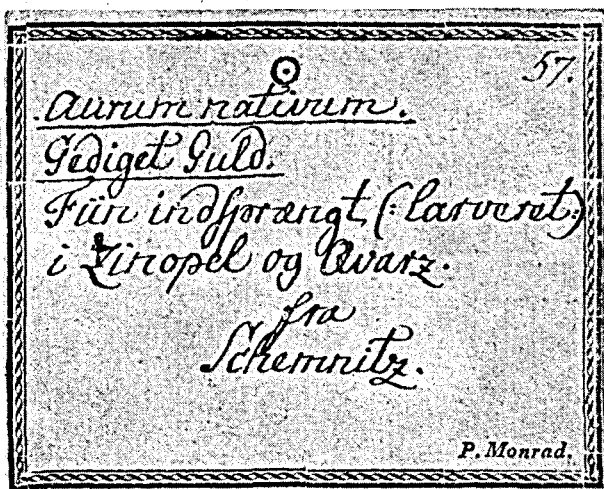 ☉ 57.
Aurum nativum.
Gediget Guld.
Fiin indsprængt (: larveret:)
i Zinopel og Qvarz.
fra
Schemnitz.
P. Monrad.